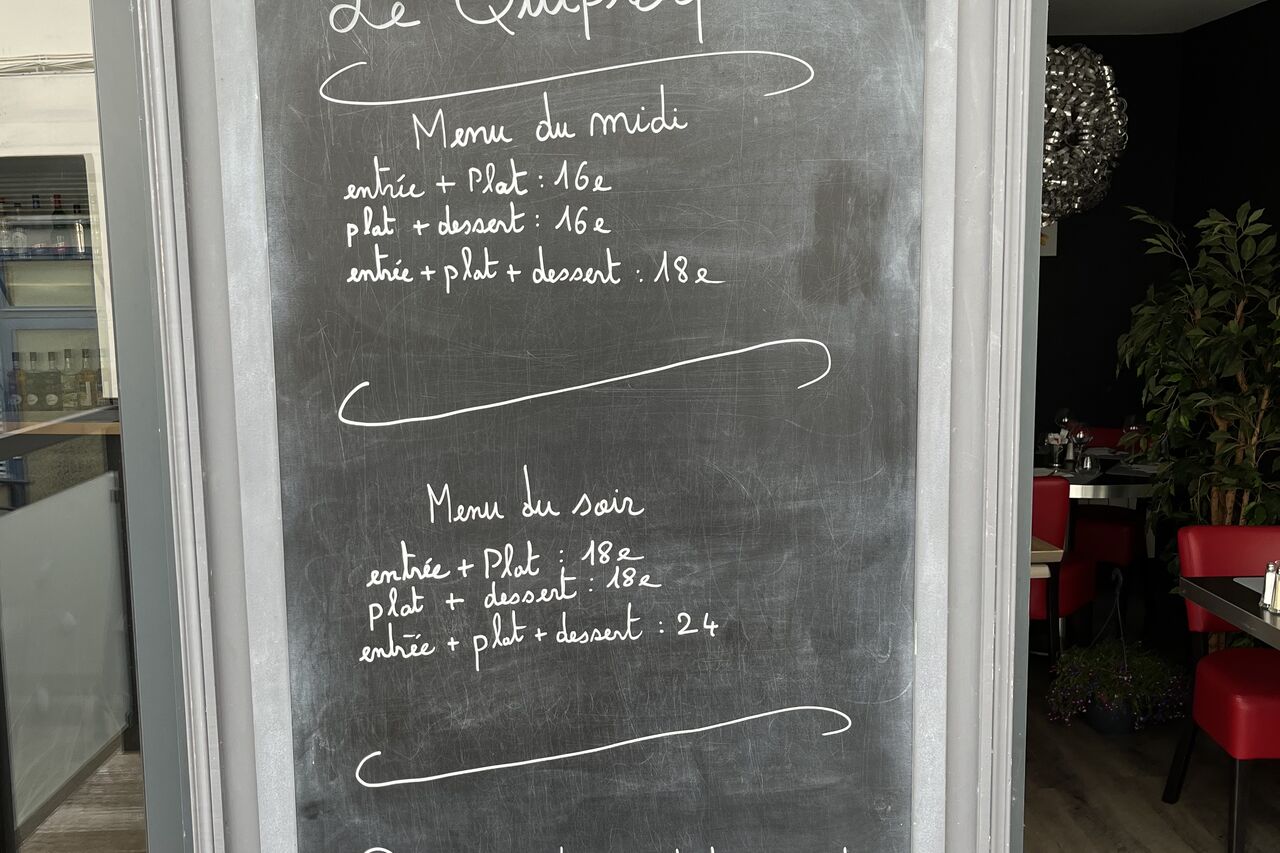 Le
Menu du midi
entrée + Plat : 16e
plat + dessert : 16e
entrée + plat + dessert : 18e
Menu du soir
entrée + Plat : 18e
plat + dessert : 18e
entrée + plat + dessert : 24